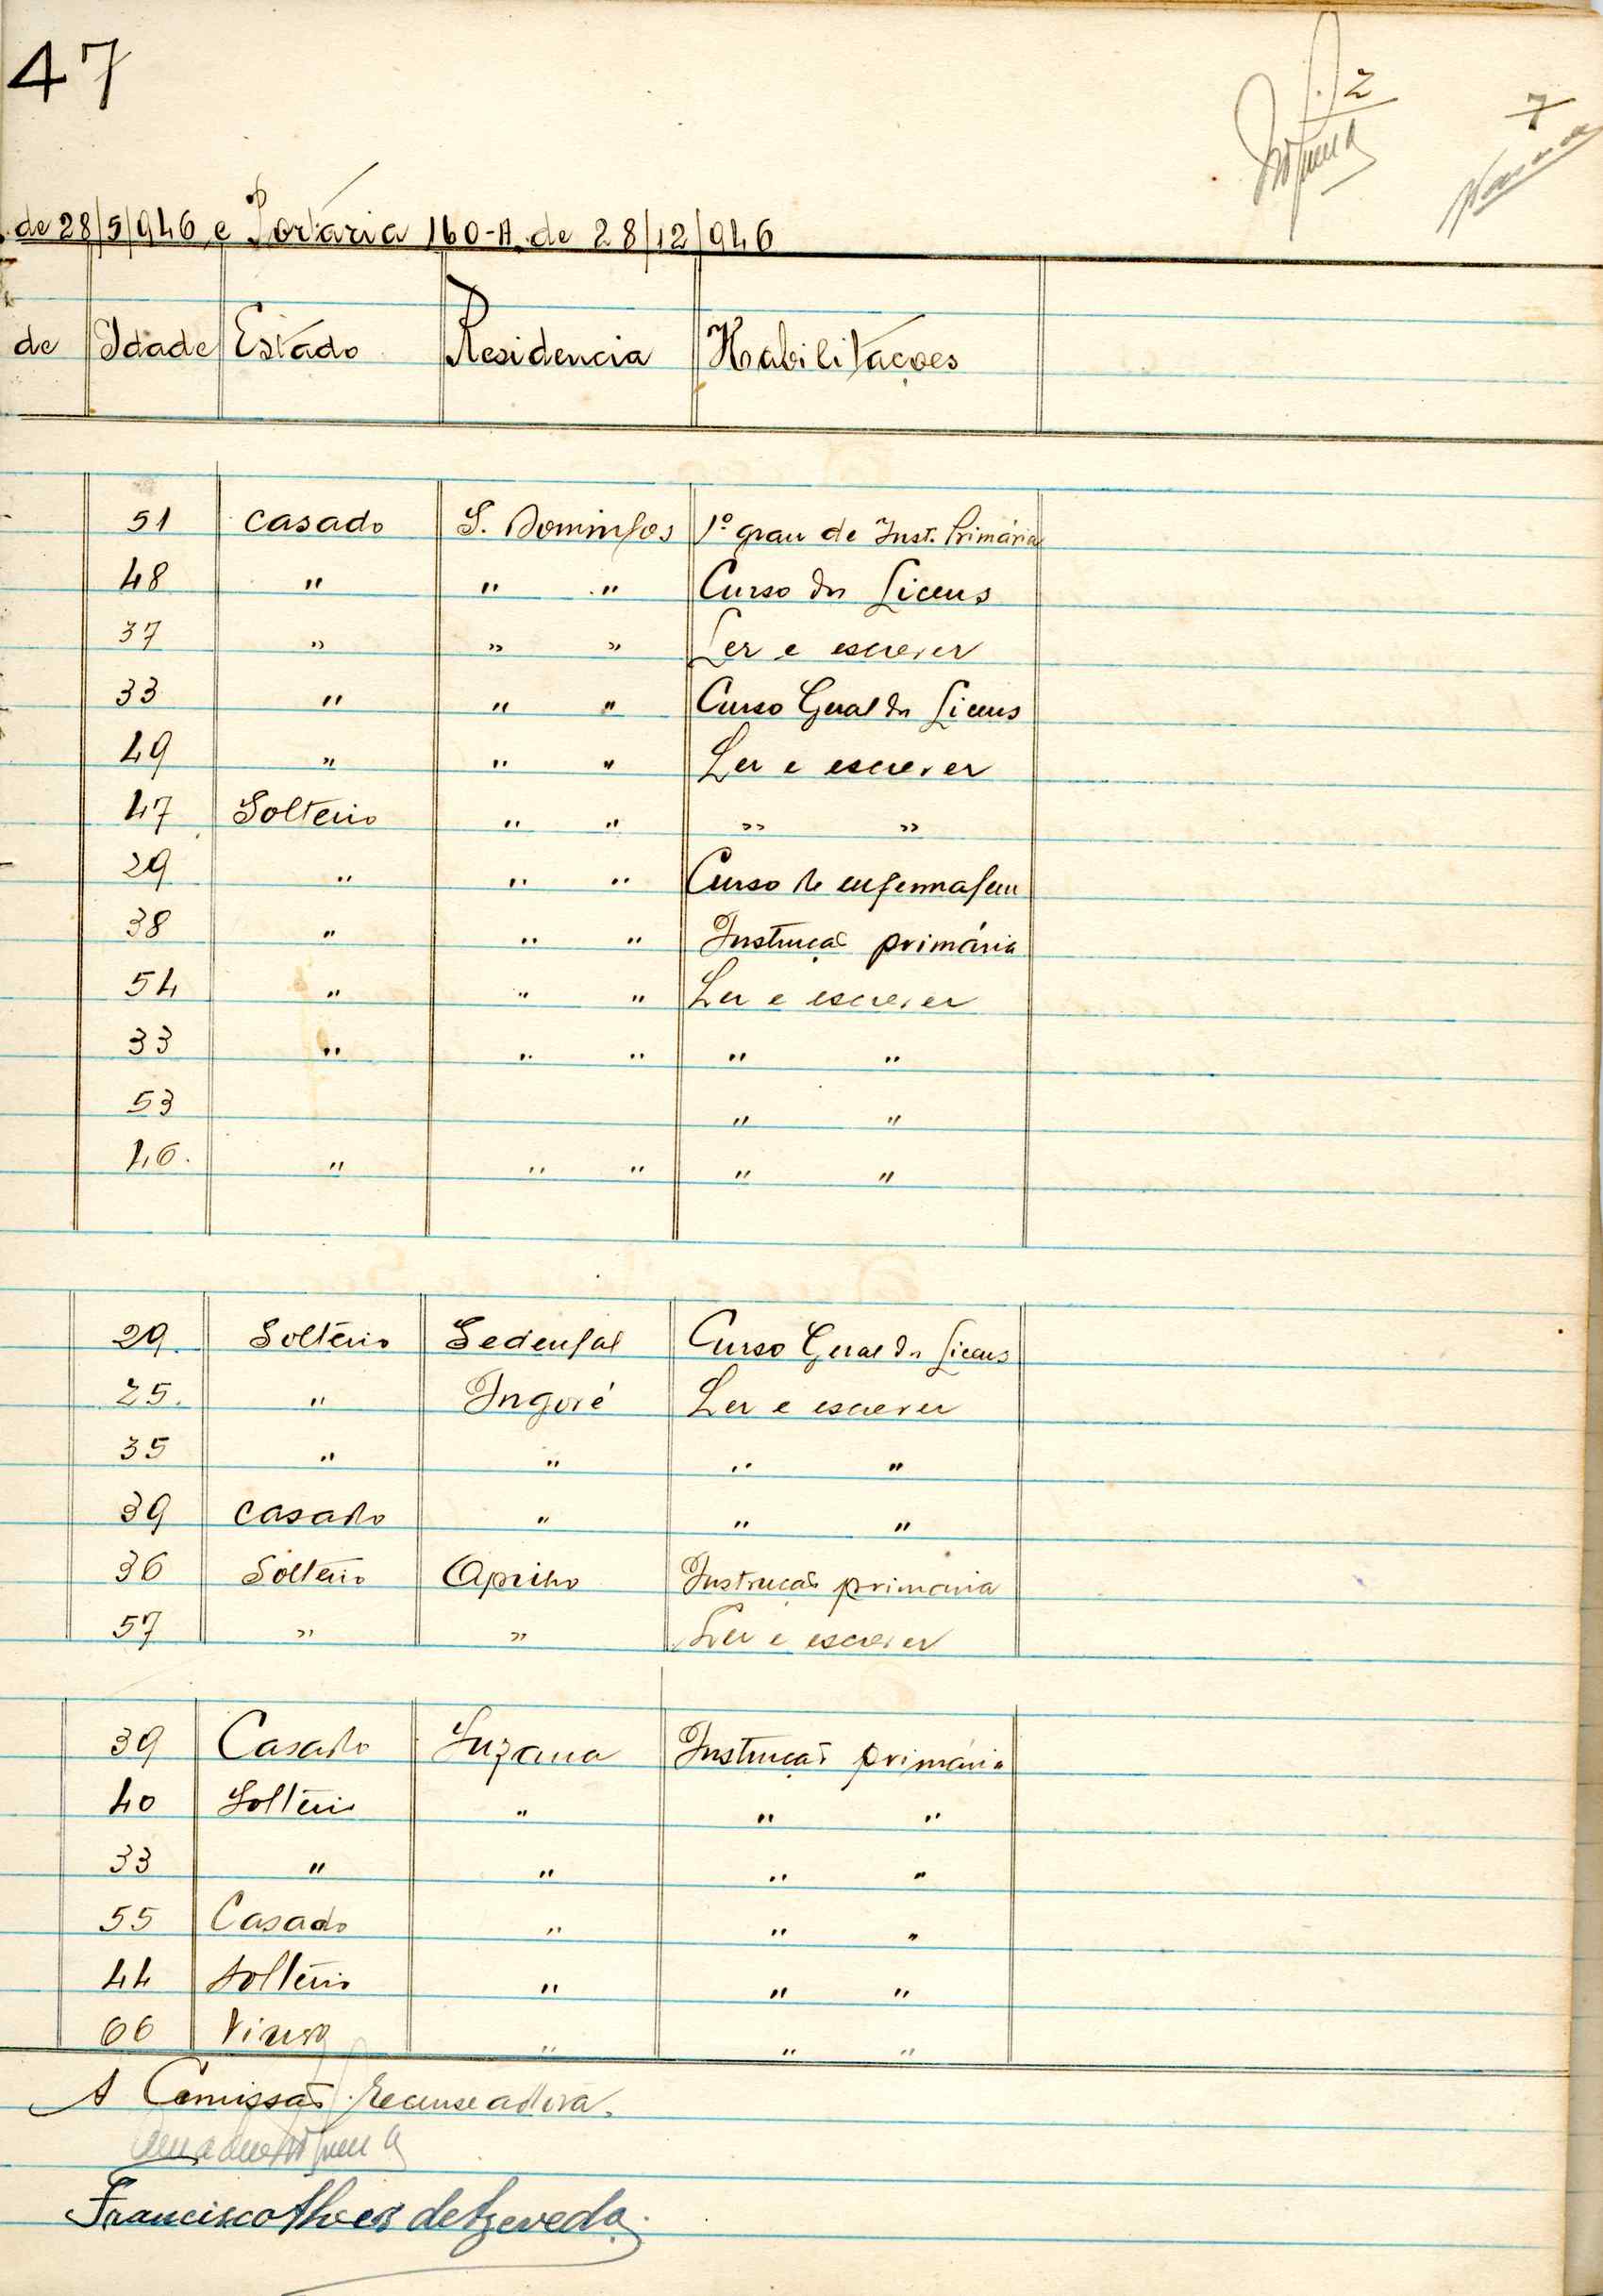 47
2
7
de 28/5/946 e Portaria 160-A de 28/12/946
de Idade Estado Residencia Habilitações
51 casado S. Domingos 1º grau de Inst. Primária
48 " " " Curso dos Liceus
37 " " " Ler e escrever
33 " " " Curso Geral dos Liceus
49 " " " Ler e escrever
47 Solteiro " " " "
29 " " " Curso de enfermagem
38 " " " Instrução primária
54 " " " Ler e escrever
33 " " " " "
53 " "
46. " " " " "
29. Solteiro Sedengal Curso Geral dos Liceus
25. " Ingoré Ler e escrever
35 " " " "
39 casado " " "
36 Solteiro Apilho Instrução primaria
57 " " Ler e escrever
39 Casado Suzana Instrução primária
40 Solteiro " " "
33 " " " "
55 Casado " " "
44 Solteiro " " "
66 Viuvo " " "
A Comissão Recenseadora,
Francisco Alves de Azevedo